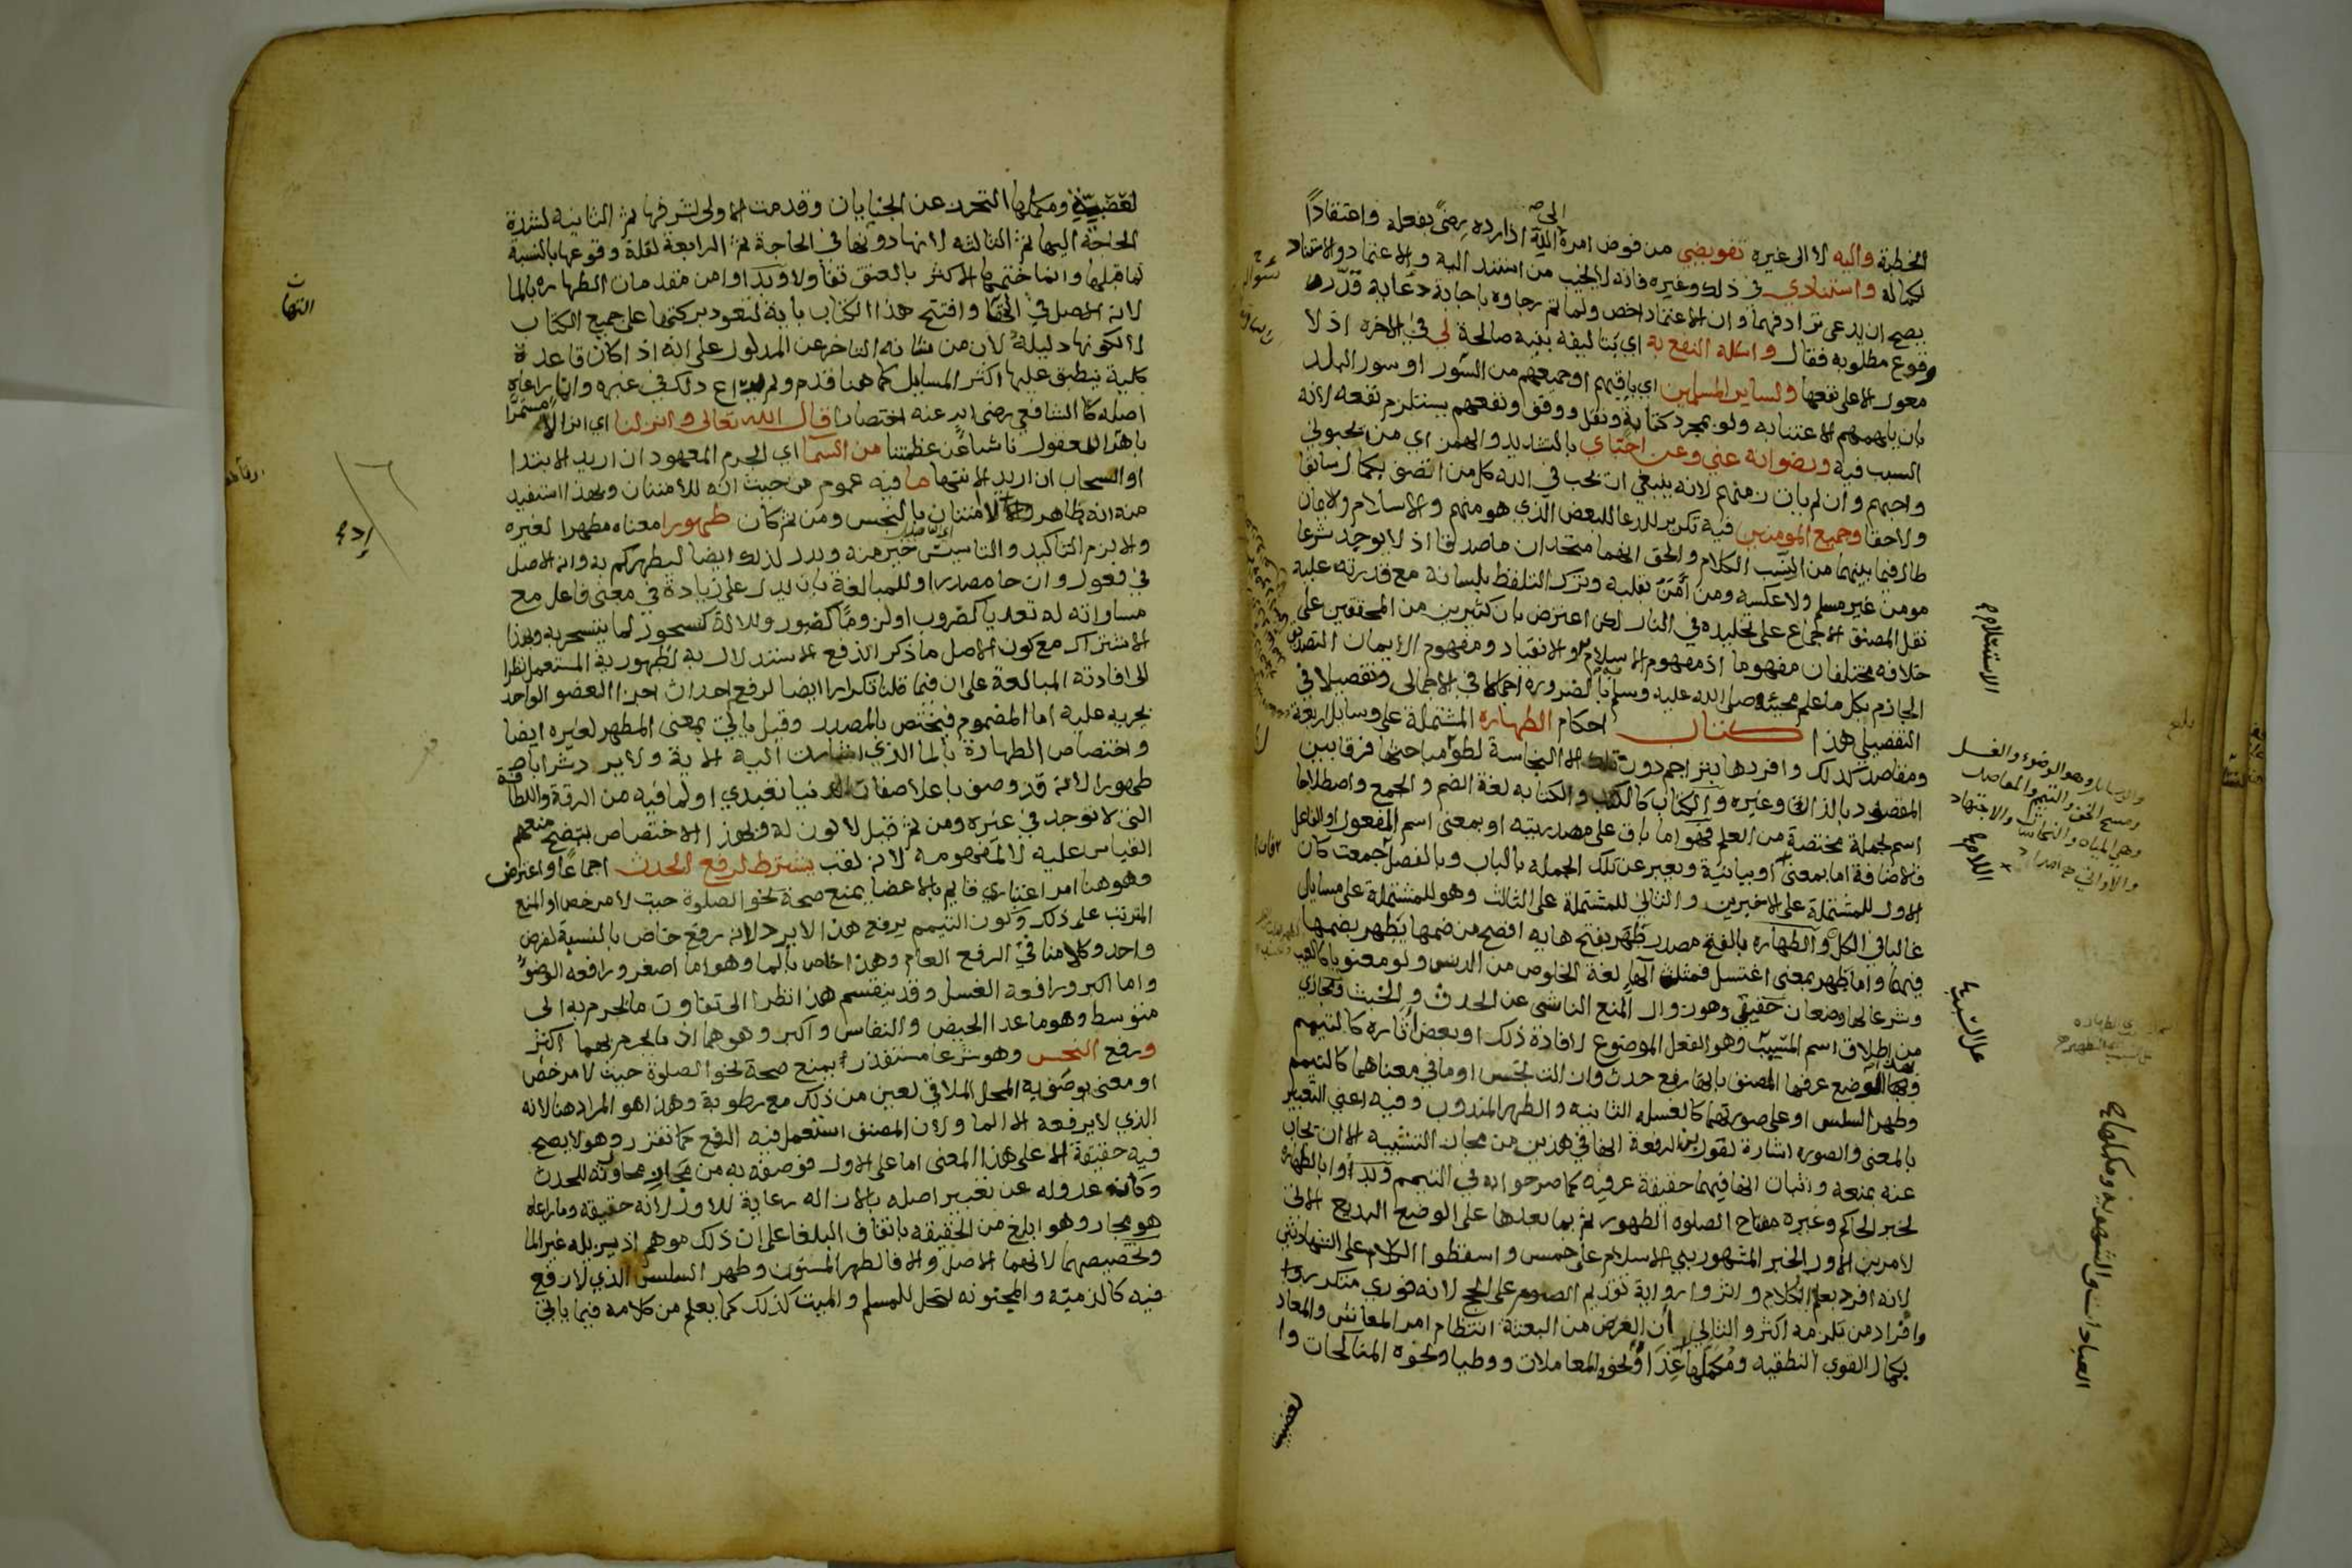 الخطبة واليه لا الى غيره تفويضي من فوض امره اليه اذا رده رضى بفعله واعتقادا
لكماله واستنادي في ذلك وغيره فانه لا يخيب من استند اليه والاعتماد والاستناد
يصح ان يدعى ترادفهما وان الاعتماد اخص ولما تم رجاوه باجابة دعائه قدر
وقوع مطلوبه فقال واسئله النفع به اي بتاليفه بنية صالحة لي في الاخرة اذ لا
معول الا على نفعها ولساير المسلمين اي باقيهم او جميعهم من السور او سور البلد
بان يلهمهم الاعتنا به ولو بمجرد كتابة ونقل ووقف ونفعهم يستلزم نفعه لانه
السبب فيه ورضوانه عني وعن احبائي بالتشديد والهمز اي من يحبوني
واحبهم وان لم يات زمنهم لانه ينبغي ان يحب في الله كل من اتصف بكمال سابقا
ولاحقا وجميع المومنين فيه تكرير للدعا للبعض الذي هو منهم والاسلام والايمان
طال فيما بينهما من النسب الكلام والحق انهما متحدان ماصدقا اذ لا يوجد شرعا
مومن غير مسلم ولا عكسه ومن امن بقلبه وترك التلفظ بلسانه مع قدرته عليه
نقل المصنف الاجماع على تخليده في النار لكن اعترض بان كثيرين من المحققين على
خلافه مختلفان مفهوما اذ مفهوم الاسلام الاستسلام والانقياد ومفهوم الايمان التصديق
الجازم بكل ما علم مجيئه صلى الله عليه وسلم به بالضرورة اجمالا في الاجمالى وتفصيلا في
التفصيلي هذا كتاب احكام الطهارة المشتملة على وسايل اربعة
ومقاصد كذلك وافردها بتراجم دون تلك الا النجاسة لطول مباحثها فرقا بين
المقصود بالذات وغيره والكتاب كالكتب والكتابه لغة الضم والجمع واصطلاحا
اسم لجملة مختصة من العلم فهو اما باق على مصدريته او بمعنى اسم المفعول او الفاعل
فالاضافة اما بمعنى اللام او بيانية ويعبر عن تلك الجملة بالباب وبالفصل فان جمعت كان
الاول للمشتملة على الاخيرين والثاني للمشتملة على الثالث وهو للمشتملة على مسايل
غالبا في الكل والطهارة بالفتح مصدر طهر بفتح هايه افصح من ضمها يطهر بضمها
فيهما واما طهر بمعنى اغتسل فمثلث الهاء لغة الخلوص من الدنس ولو معنويا كالعيب
وشرعا لها وضعان حقيقي وهو زوال المنع الناشى عن الحدث والخبث ومجازي
من اطلاق اسم المسبب على السبب وهو الفعل الموضوع لافادة ذلك او بعض اثاره كالتيمم
وبهذا الوضع عرفها المصنف بانها رفع حدث وازالة نجس او ما في معناهما كالتيمم
وطهر السلس او على صورتهما كالغسله الثانيه والطهر المندوب وفيه اعني التعبير
بالمعنى والصورة اشارة لقول ابن الرفعة انها في هذين من مجاز التشبيه الا ان يجاب
عنه بمنعه واثبات انها فيهما حقيقة عرفية كما صرحوا به في التيمم وبداوا بالطهارة
لخبر الحاكم وغيره مفتاح الصلوة الطهور ثم بما بعدها على الوضع البديع الاتي
لامرين الاول الخبر المشهور بني الاسلام على خمس واسقطوا الكلام على الشهادتين
لانه افرد بعلم الكلام واثروا رواية تقديم الصوم على الحج لانه فوري متكرر
وافراد من تلزمه اكثر والثاني ان الغرض من البعثة انتظام امر المعاش والمعاد
بكمال القوى النطقيه ومكملها العبادات والشهوية ومكملها غذا ونحوه المعاملات ووطيا ونحوه المناكحات وا
لغضبية
الاستسلام
والوسايل وهو الوضوء والغسل
ومسح الخف والتيمم والمقاصد
وهي المياه والنجاسات والاجتهاد
والاواني
اللام صح
على السبب
العبادات والشهوية ومكملها صح
لغضبية ومكملها التحرز عن الجنايات وقدمت الاولى لشرفها ثم الثانية لشدة
الحاجة اليها ثم الثالثه لانها دونها في الحاجة ثم الرابعة لقلة وقوعها بالنسبة
لما قبلها وانما ختمها الاكثر بالعتق تفاولا وبداوا من مقدمات الطهارة بالما
لانه الاصل في التها وافتتح هذا الكتاب باية لتعود بركتها على جميع الكتاب
لا لكونها دليله لان من شانه التاخر عن المدلول على انه اذا كان قاعدة
كلية ينطبق عليها اكثر المسايل كما هنا قدم ولم يراع ذلك في غيره وان راعاه
اصله كالشافعي رضى الله عنه اختصارا قال الله تعالى وانزلنا اي انزالا مستمرا
باهرا للعقول ناشيا عن عظمتنا من السما اي الجرم المعهود ان اريد الابتدا
او السحاب ان اريد الانتها ما فيه عموم من حيث انه للامتنان وبهذا استفيد
منه انه طاهر اذ لا امتنان بالنجس ومن ثم كان طهورا معناه مطهرا لغيره
والا لزم التاكيد والتاسيس خير منه ويدل لذلك ايضا ليطهركم به وانه الاصل
في فعول وان جا مصدرا وللمبالغة بان يدل على زيادة في معنى فاعل مع
مساواته له تعديا كضروب او لزوما كصبور وللالة كسحور لما يتسحر به وبهذا
الاشتراك مع كون الاصل ما ذكر اندفع الاستدلال به لطهورية المستعمل نظرا
الى افادته المبالغة على ان فيما قلنا تكرارا ايضا لرفع احداث اجزا العضو الواحد
بجريه عليه اما المضموم فيختص بالمصدر وقيل ياتي بمعنى المطهر لغيره ايضا
واختصاص الطهارة بالما الذي اشارت اليه الاية ولا يرد شرابا
طهورا لانه قد وصف باعلا صفات الدنيا تعبدي او لما فيه من الرقة واللطافة
التي لا توجد في غيره ومن ثم قيل لا لون له وبهذا الاختصاص يتضح منعهم
القياس عليه لا لمفهومه لانه لقب يشترط لرفع الحدث اجماعا واعترض
وهو هنا امر اعتباري قايم بالاعضا يمنع صحة نحو الصلوة حيث لا مرخص او المنع
المترتب على ذلك وكون التيمم يرفع هذا لا يرد لانه رفع خاص بالنسبة لفرض
واحد وكلامنا في الرفع العام وهذا خاص بالما وهو اما اصغر ورافعه الوضوء
واما اكبر ورافعه الغسل وقد ينقسم هذا نظرا الى تفاوت ما يحرم به الى
متوسط وهو ما عدا الحيض والنفاس واكبر وهو هما اذ ما يحرم بهما اكثر
ورفع النجس وهو شرعا مستقذر يمنع صحة نحو الصلوة حيث لا مرخص
او معنى يوصف به المحل الملاقي لعين من ذلك مع رطوبة وهذا هو المراد هنا لانه
الذي لا يرفعه الا الما ولان المصنف استعمل فيه الرفع كما تقرر وهو لا يصح
فيه حقيقة الا على هذا المعنى اما على الاول فوصفه به من مجاز مجاورته للحدث
وكانه عدوله عن تعبير اصله بالازاله رعاية للاول لانه حقيقه وما راعاه
هو مجاز وهو ابلغ من الحقيقه باتفاق البلغا على ان ذلك موهم اذ يزيله غير الما
وتخصيصهما لانهما الاصل والا فالطهر المسنون وطهر السلس الذي لا رفع
فيه كالذمية والمجنونه لتحل للمسلم والميت كذلك كما يعلم من كلامه فيما ياتي